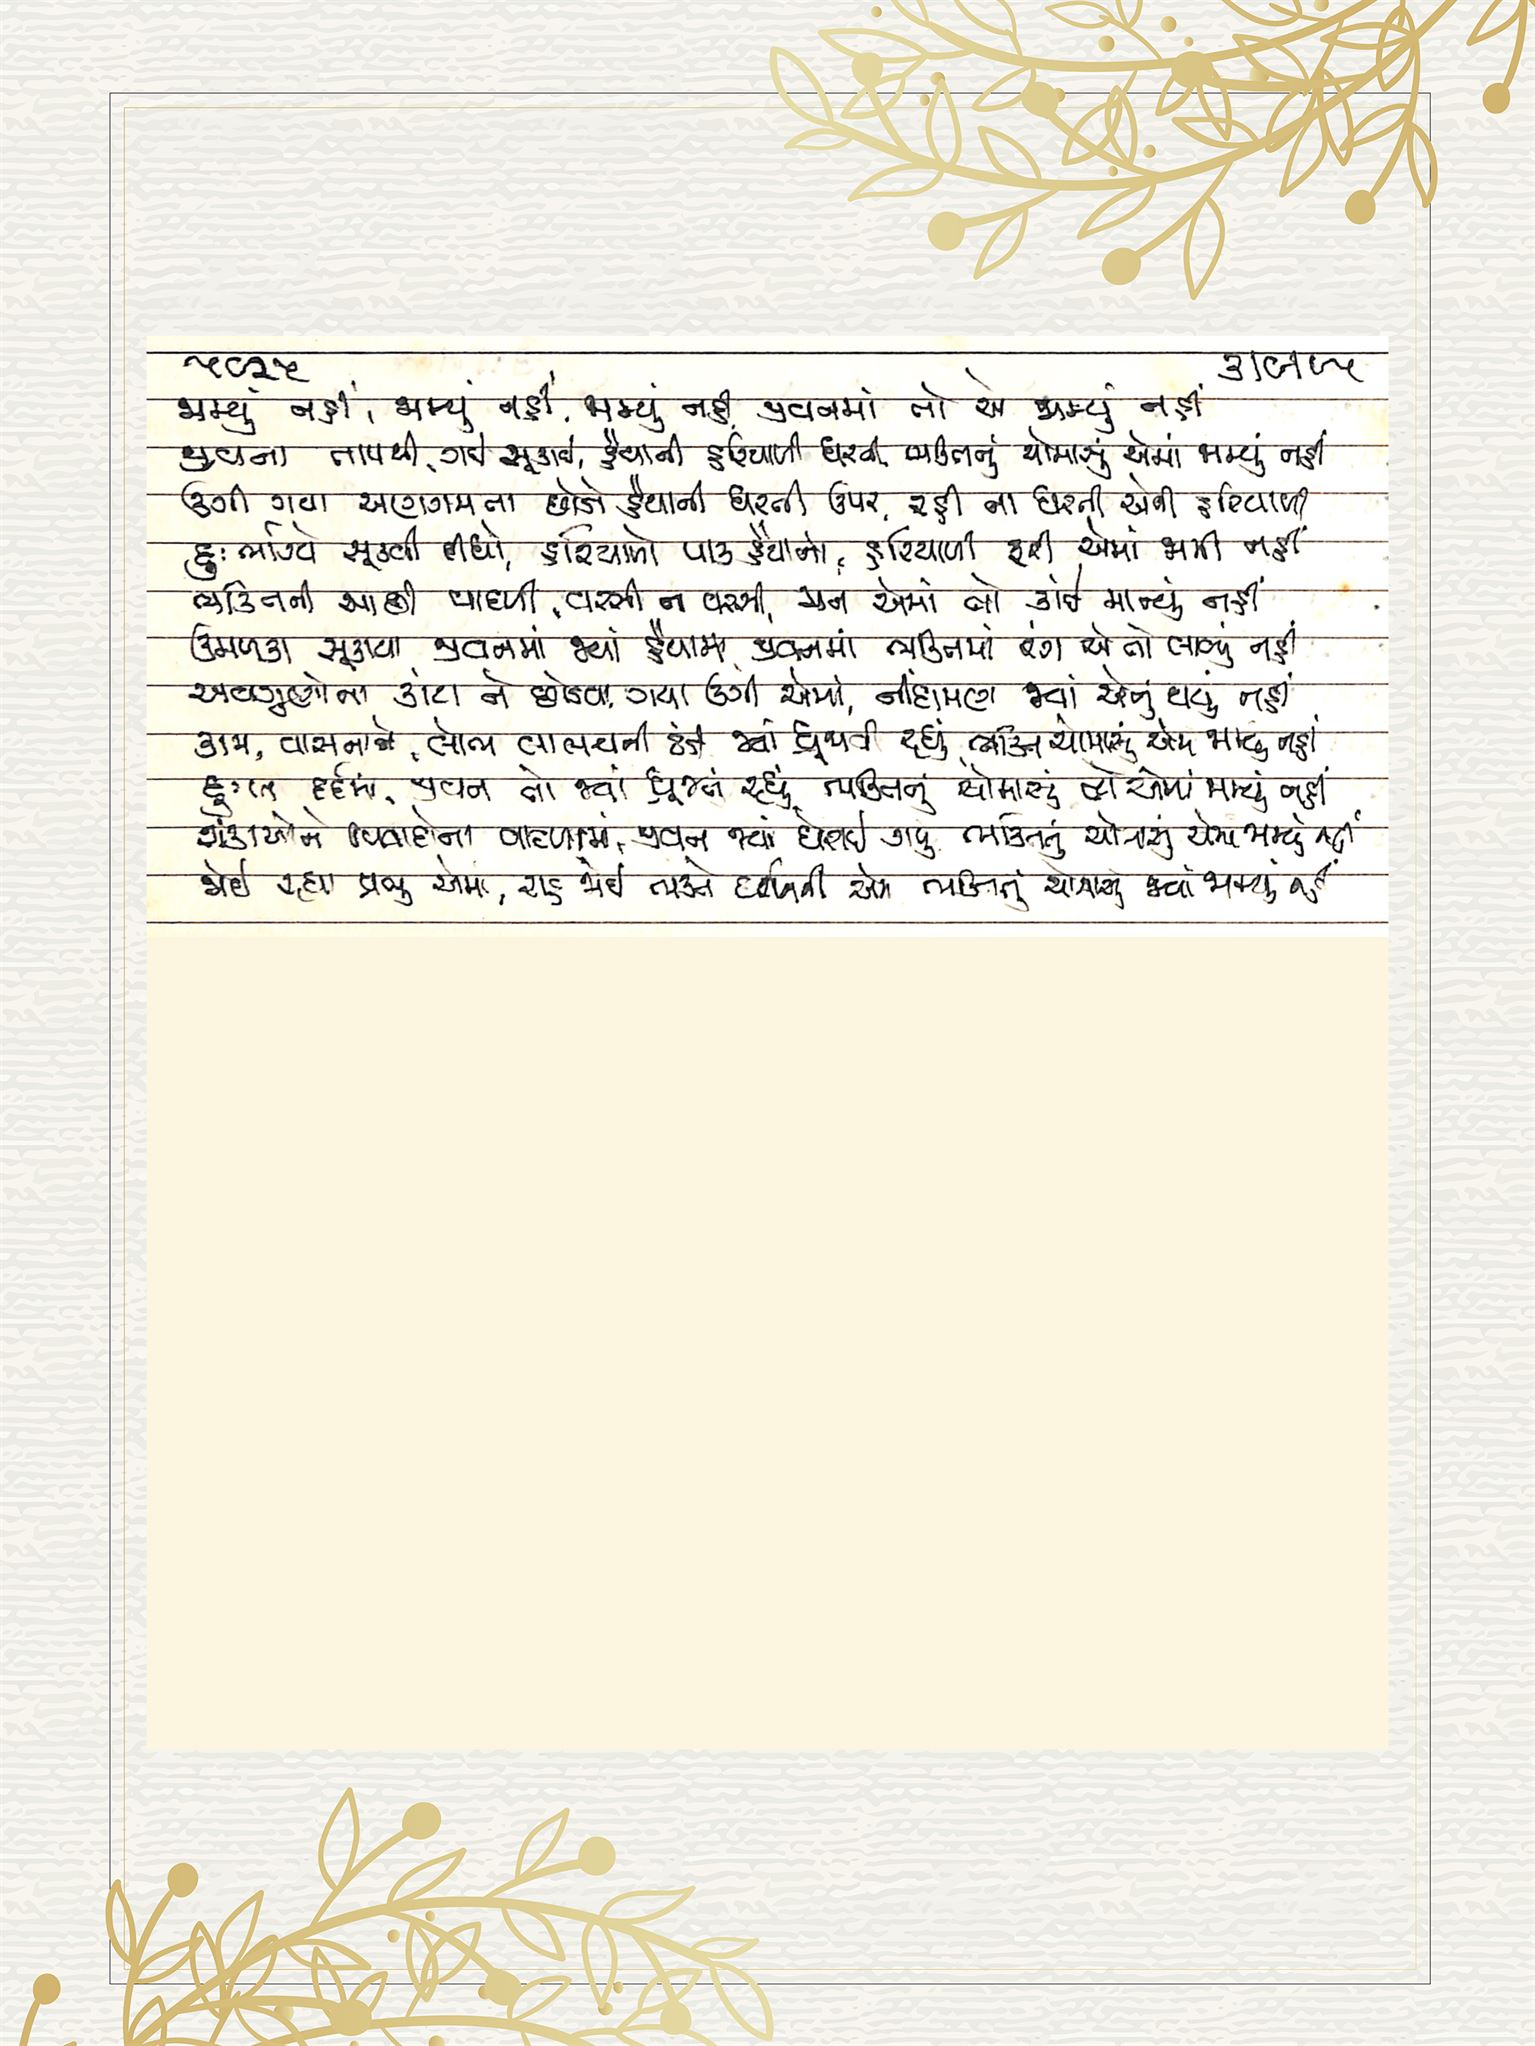 જામ્યું નહીં, જામ્યું નહીં, જામ્યું નહીં, જીવનમાં તો એ જામ્યું નહીં
જીવના તાપથી, ગઈ સૂકાઈ, હૈયાની હરિયાળી ધરતી, ભક્તિનું ચોમાસું એમાં જામ્યું નહીં
ઉગી ગયા અણગમના છોડો હૈયાની ધરતી ઉપર, રહી ના ધરતી એવી હરિયાળી
દુઃર્ભાગ્યે સૂકવી દીધો, હરિયાળો પાક હૈયાનો, હરિયાળી ફરી એમાં જામી નહીં
ભક્તિની આછી વાદળી, વરસી ન વરસી, મન એમાં તો કાંઈ માન્યું નહીં
ઉમળકા સૂકાયા જીવનમાં જ્યાં હૈયામાં, જીવનમાં ભક્તિમાં રંગ એ તો લાવ્યું નહીં
અવગુણોના કાંટા ને છોડવા, ગયા ઉગી એમાં, નીંદામણ જ્યાં એનું થયું નહીં
કામ, વાસનાને, લોભ લાલચની ઠંડી જ્યાં ધ્રૂજાવી રહ્યું, ભક્તિનું ચોમાસું એમાં જામ્યું નહીં
દુઃખ દર્દમાં, જીવન તો જ્યાં ધ્રૂજતું રહ્યું, ભક્તિનું ચોમાસું તો એમાં જામ્યું નહીં
શંકાઓને વિવાદોના વાદળામાં, જીવન જ્યાં ઘેરાઈ ગયું ભક્તિનું ચોમાસું એમાં જામ્યું નહીં
જોઈ રહ્યા પ્રભુ એમાં, રાહ જોઈ ભક્તે દર્શનની એમાં ભક્તિનું ચોમાસું જ્યાં જામ્યું નહીં